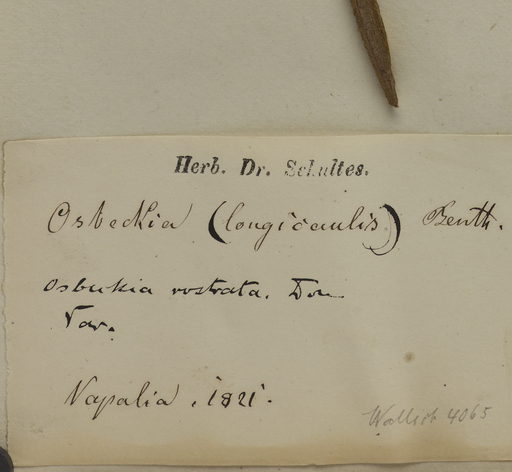 Herb. Dr. Schultes.
Osbeckia (longicaulis) Benth.
Osbukia rostrata. Don
Var.
Napalia. 1821.
Wallich 4065